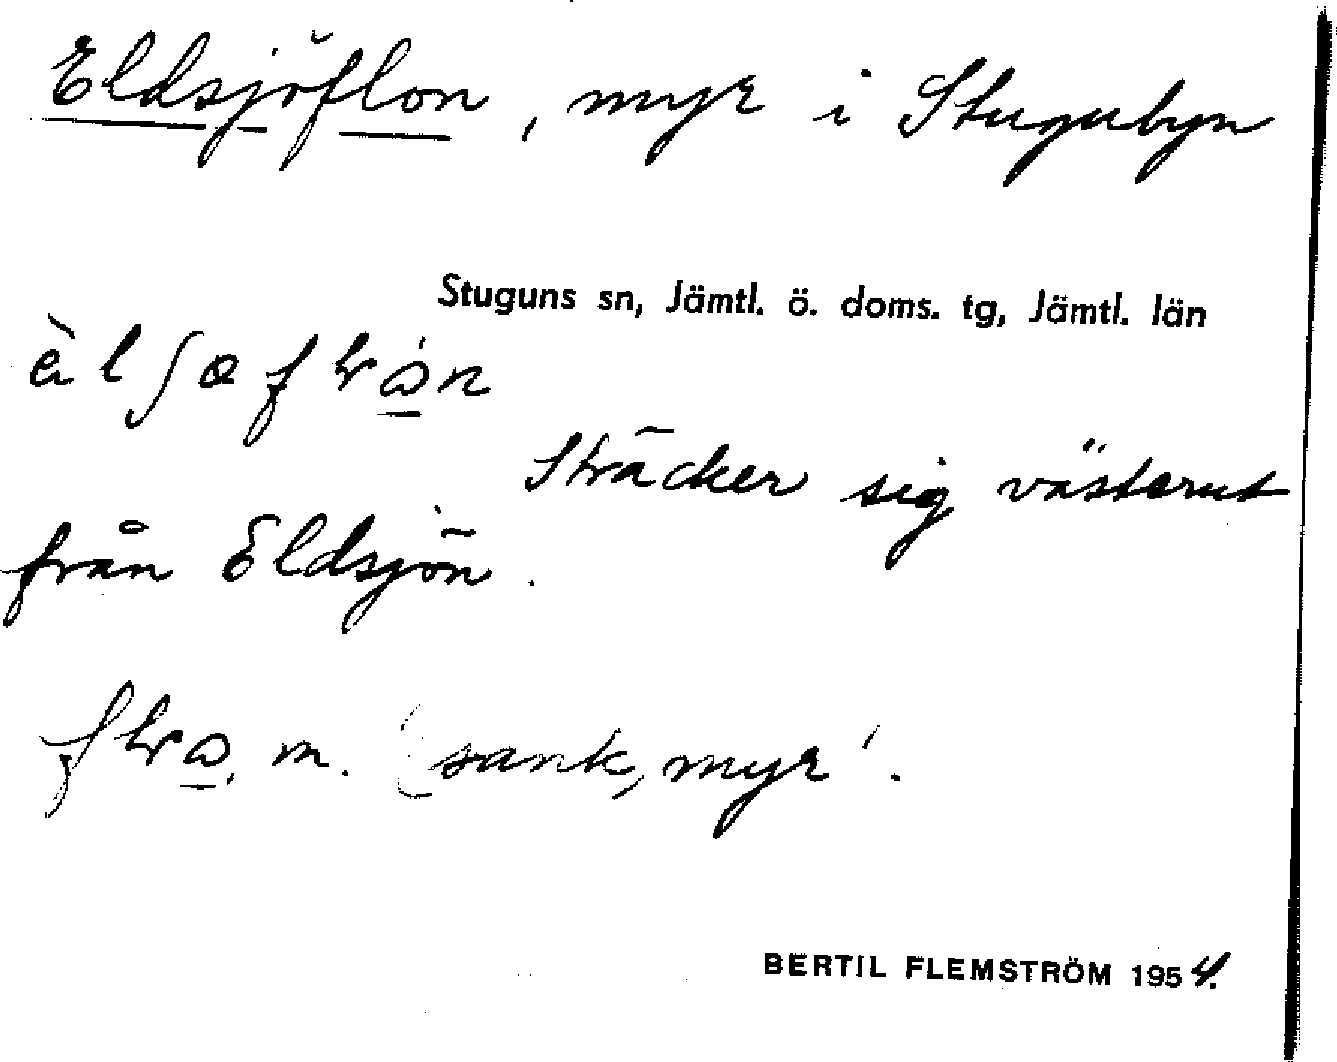 Eldsjöflon, myr i Stugubyn
Stuguns sn, Jämtl. ö. doms. tg, Jämtl. län
Sträcker sig västerut
från Eldsjön.
m. 'sank, myr'.
BERTIL FLEMSTRÖM 1954.